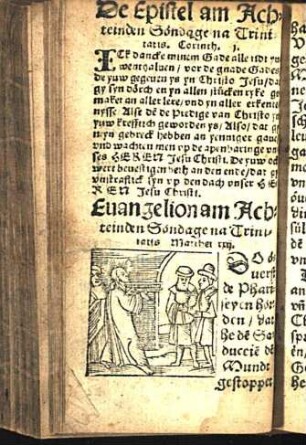 De Epistel am Ach-
teinden Söndage na Trini
tatis. Corinth. j.
ICk dancke minem Gade alle tidt
vor de gnade Gades
de yuw gegeuen ys yn Christo Jesu / da
gy syn dörch en yn allen stücken ryke ge
maket an aller lere / vnd yn aller erkente
nysse Alse de Predige van Christo yn
yuw krefftich geworden ys / Also / dat gy
nyn gebreck hebben an yenniger gaue
vnd wachten men vp de apenbaringe vn
ses HEREN Jesu Christi. De yuw ock
wert beuestigen beth an den ende / dat gy
vnstrafflick syn vp den dach vnser HE
REN Jesu Christi.
Euangelion am Ach-
teinden Söndage na Trini
tatis Matthei xxij.
DO
de Phari
seyen hör
den / dat
he de Sa
duceië de
Mundt
gestoppet